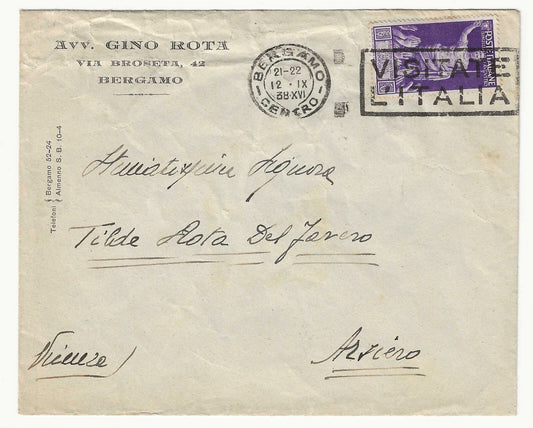 Avv. GINO ROTA
VIA BROSETA, 42
BERGAMO
Telefoni { Bergamo 52-24
Almenno S. B. 10-4
BERGAMO
21-22
12 · IX
38·XVI
CENTRO
VISITATE
L'ITALIA
POSTE ITALIANE
Signora
Tilde Rota Del Favero
(Vicenza)
Arsiero